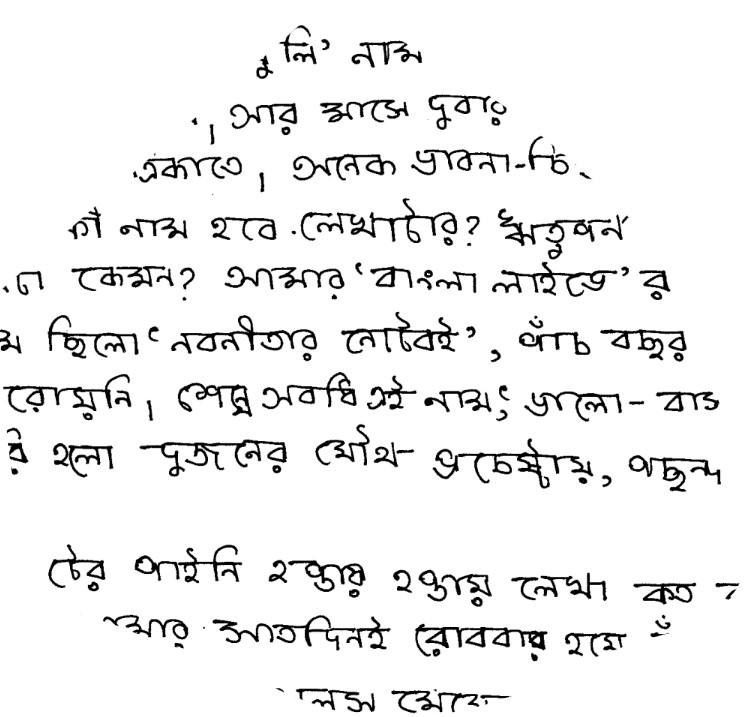 লি’ নাম
, আর মাসে দুবার
একাতে, অনেক ভাবনা-চি
কী নাম হবে লেখাটার? ঋতুপর্ণ
টা কেমন? আমার ‘বাংলা লাইভে’র
ম ছিলো ‘নবনীতার নোটবই’, পাঁচ বছর
রোয়নি, শেষ অবধি এই নাম, ভালো-বাস
র হলো দুজনের যৌথ প্রচেষ্টায়, পছন্দ
টের পাইনি হপ্তায় হপ্তায় লেখা কত
আর সাতদিনই রোববার হয়ে